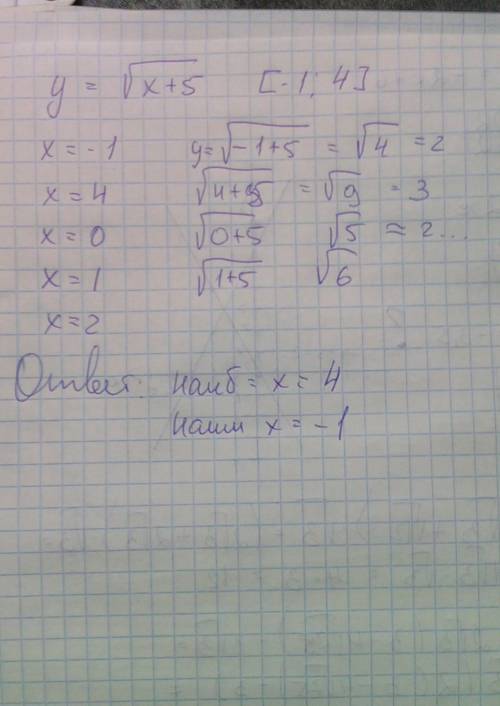 y = √x+5 [-1; 4]
x = -1 y=√-1+5 = √4 = 2
x = 4 √4+5 = √9 = 3
x = 0 √0+5 √5 ≈ 2...
x = 1 √1+5 √6
x = 2
Ответ: наиб = x = 4
наим x = -1